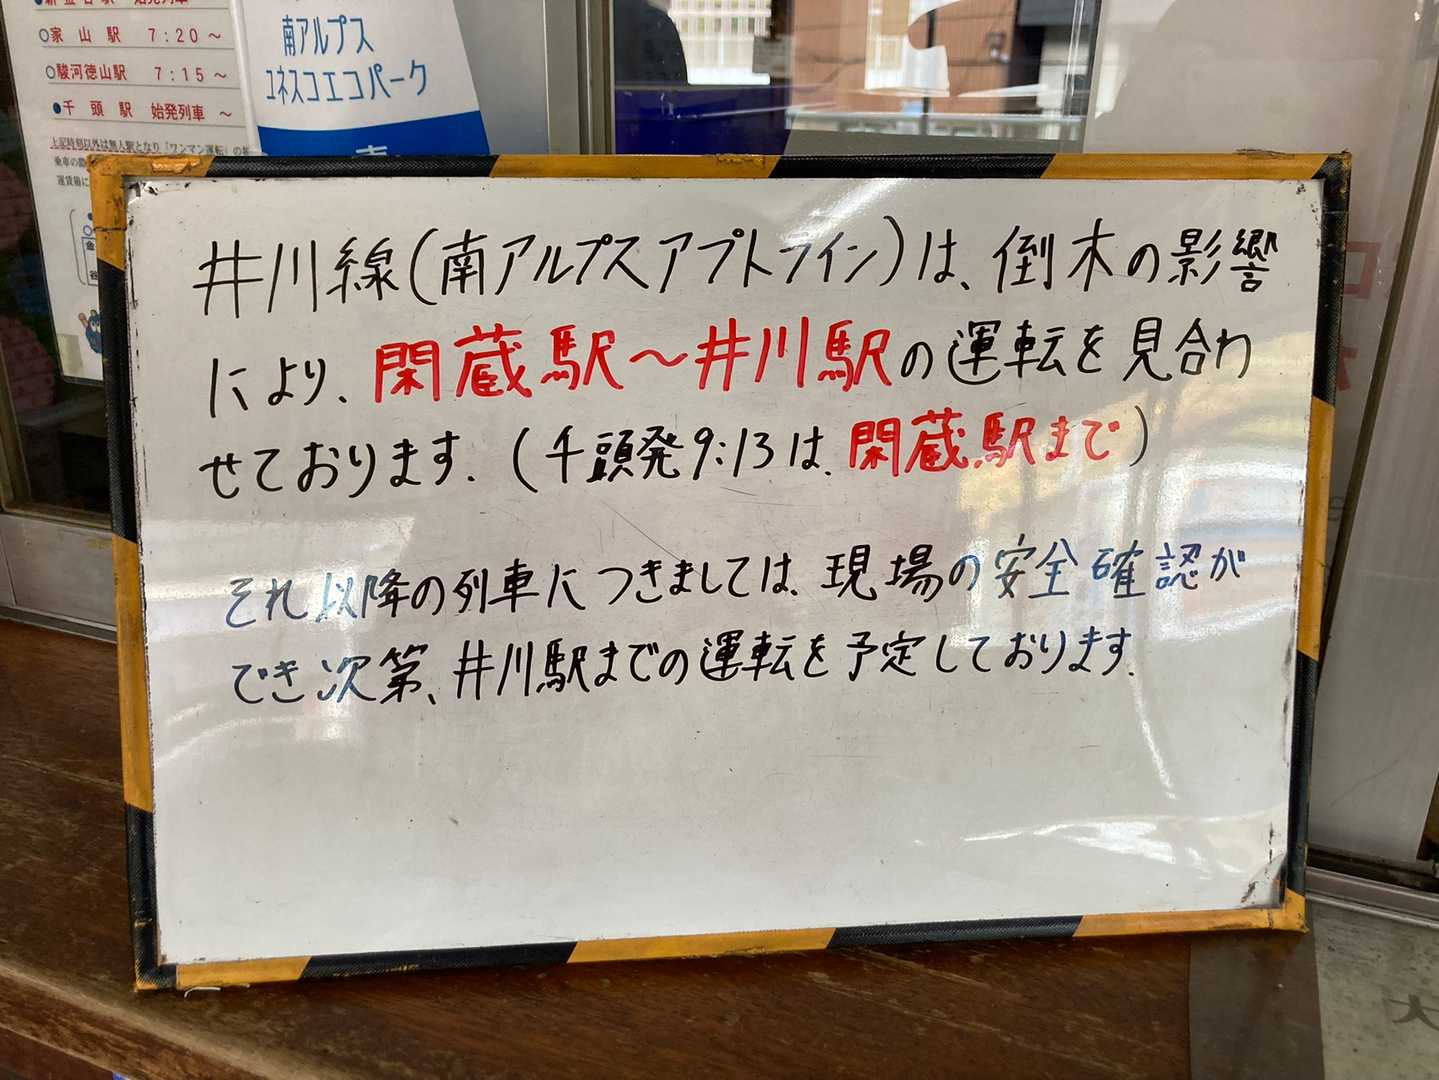 新金谷駅 始発列車
○家山駅 7:20～
○駿河徳山駅 7:15～
●千頭駅 始発列車 ～
上記時刻以外は無人駅となり「ワンマン運転」の
南アルプス
ユネスコエコパーク
井川線(南アルプスアプトライン)は、倒木の影響
により、閑蔵駅～井川駅の運転を見合わ
せております.(千頭発9:13は、閑蔵駅まで)
それ以降の列車につきましては、現場の安全確認が
でき次第、井川駅までの運転を予定しております.